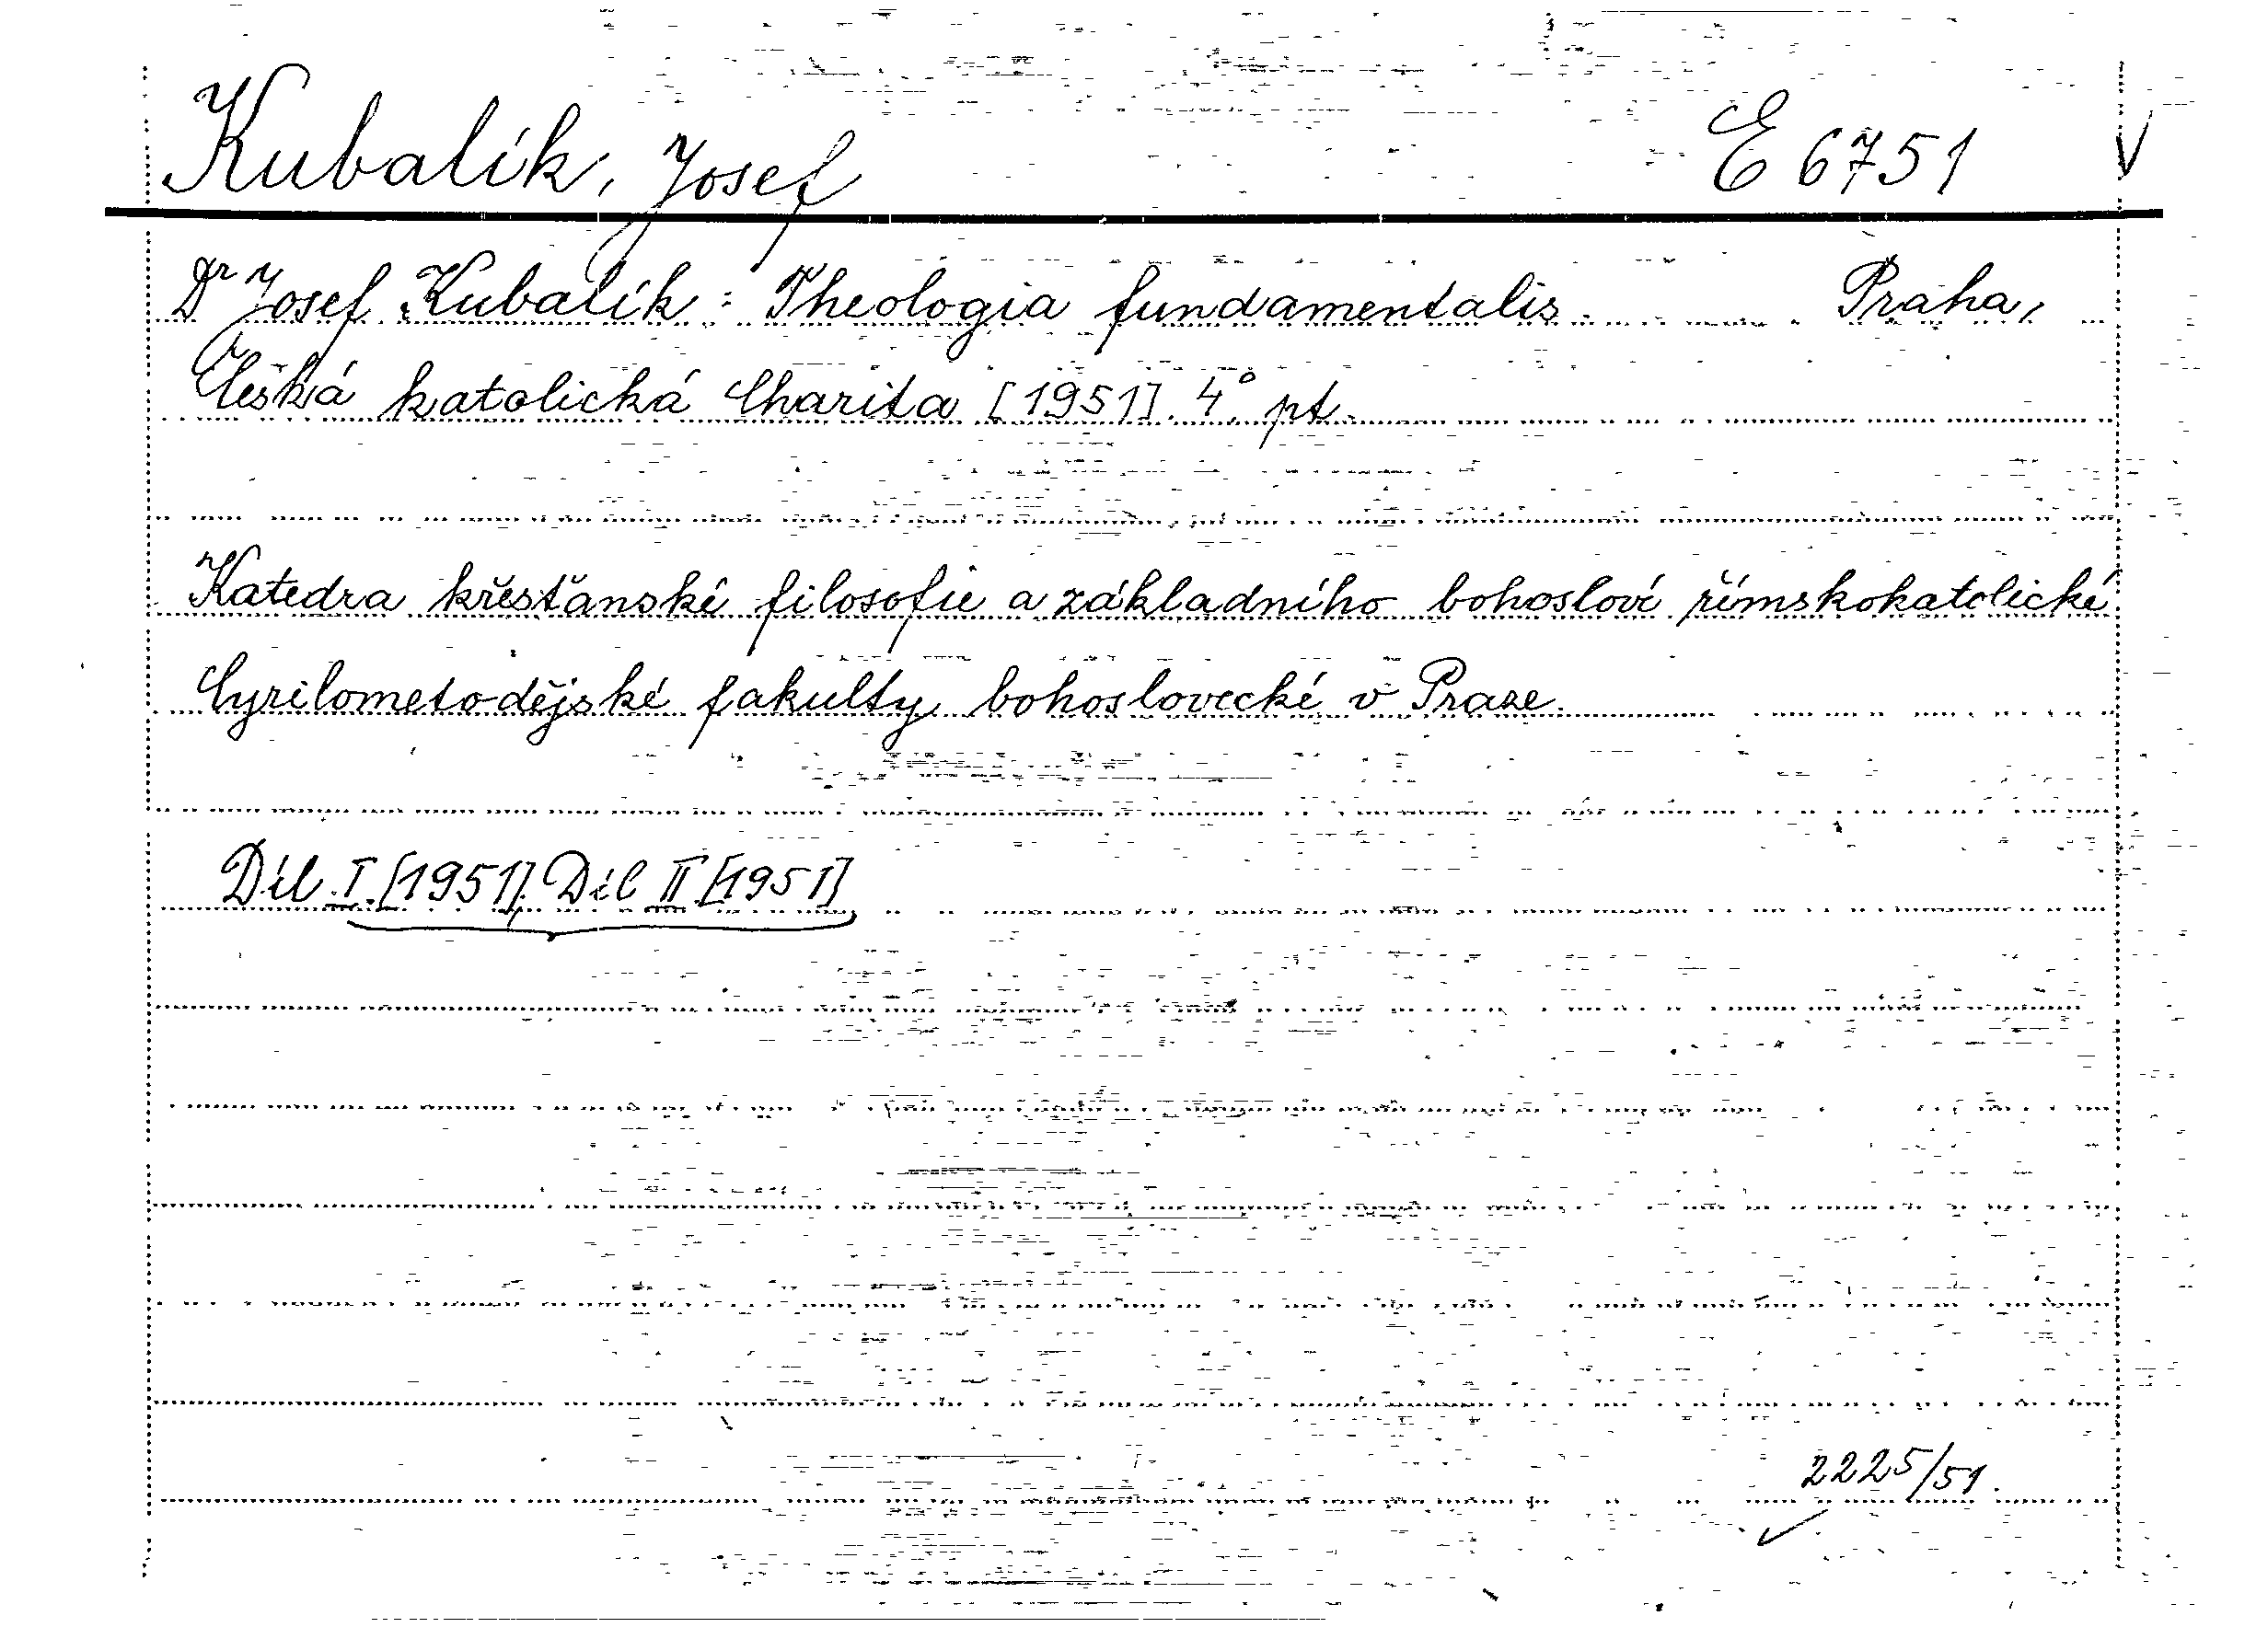 Kubalík, Josef E 6751 V
Dr Josef Kubalík: Theologia fundamentalis. Praha,
Česká katolická Charita [1951]. 4° pt.
Katedra křesťanské filosofie a základního bohosloví římskokatolické
Cyrilometodějské fakulty bohoslovecké v Praze.
Díl I. [1951]. Díl II [1951]
2225/51.